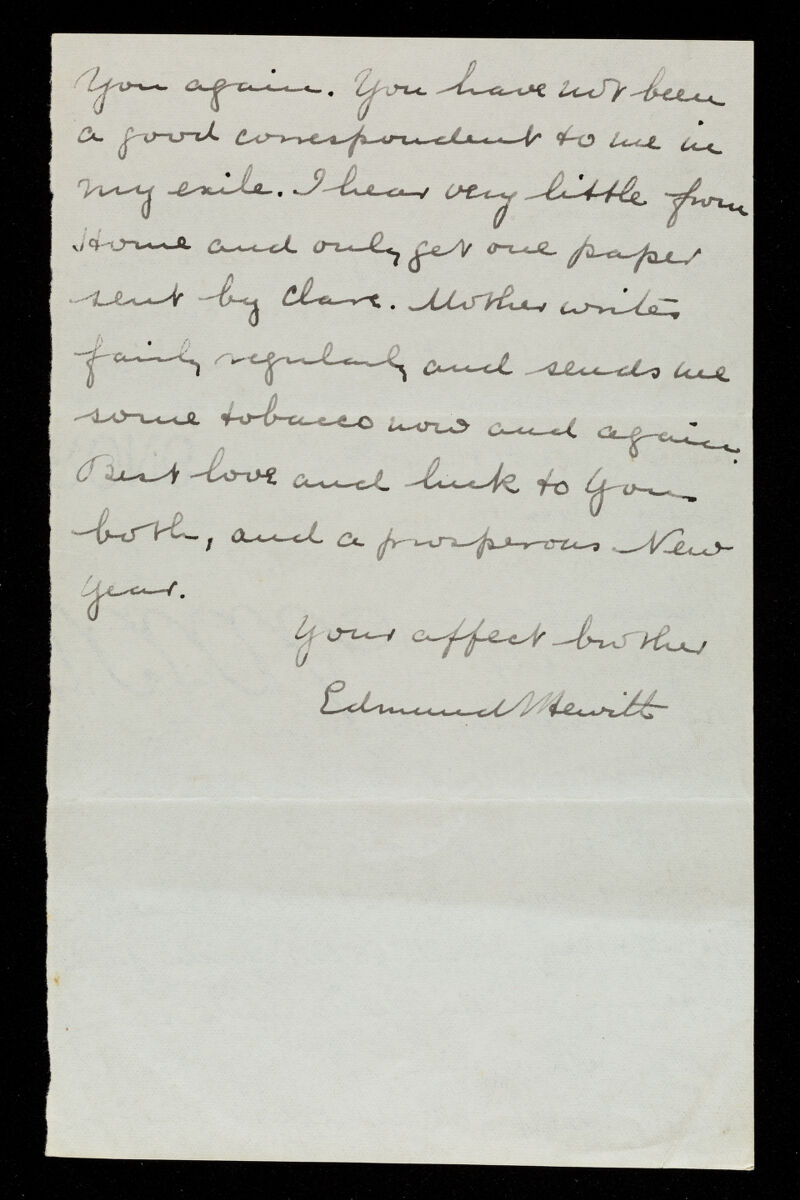 You again. You have not been
a good correspondent to me in
my exile. I hear very little from
Home and only get one paper
sent by Clare. Mother writes
fairly regularly and sends me
some tobacco now and again.
Best love and luck to you
both, and a prosperous New
Year.
Your affect brother
Edmund Hewitt